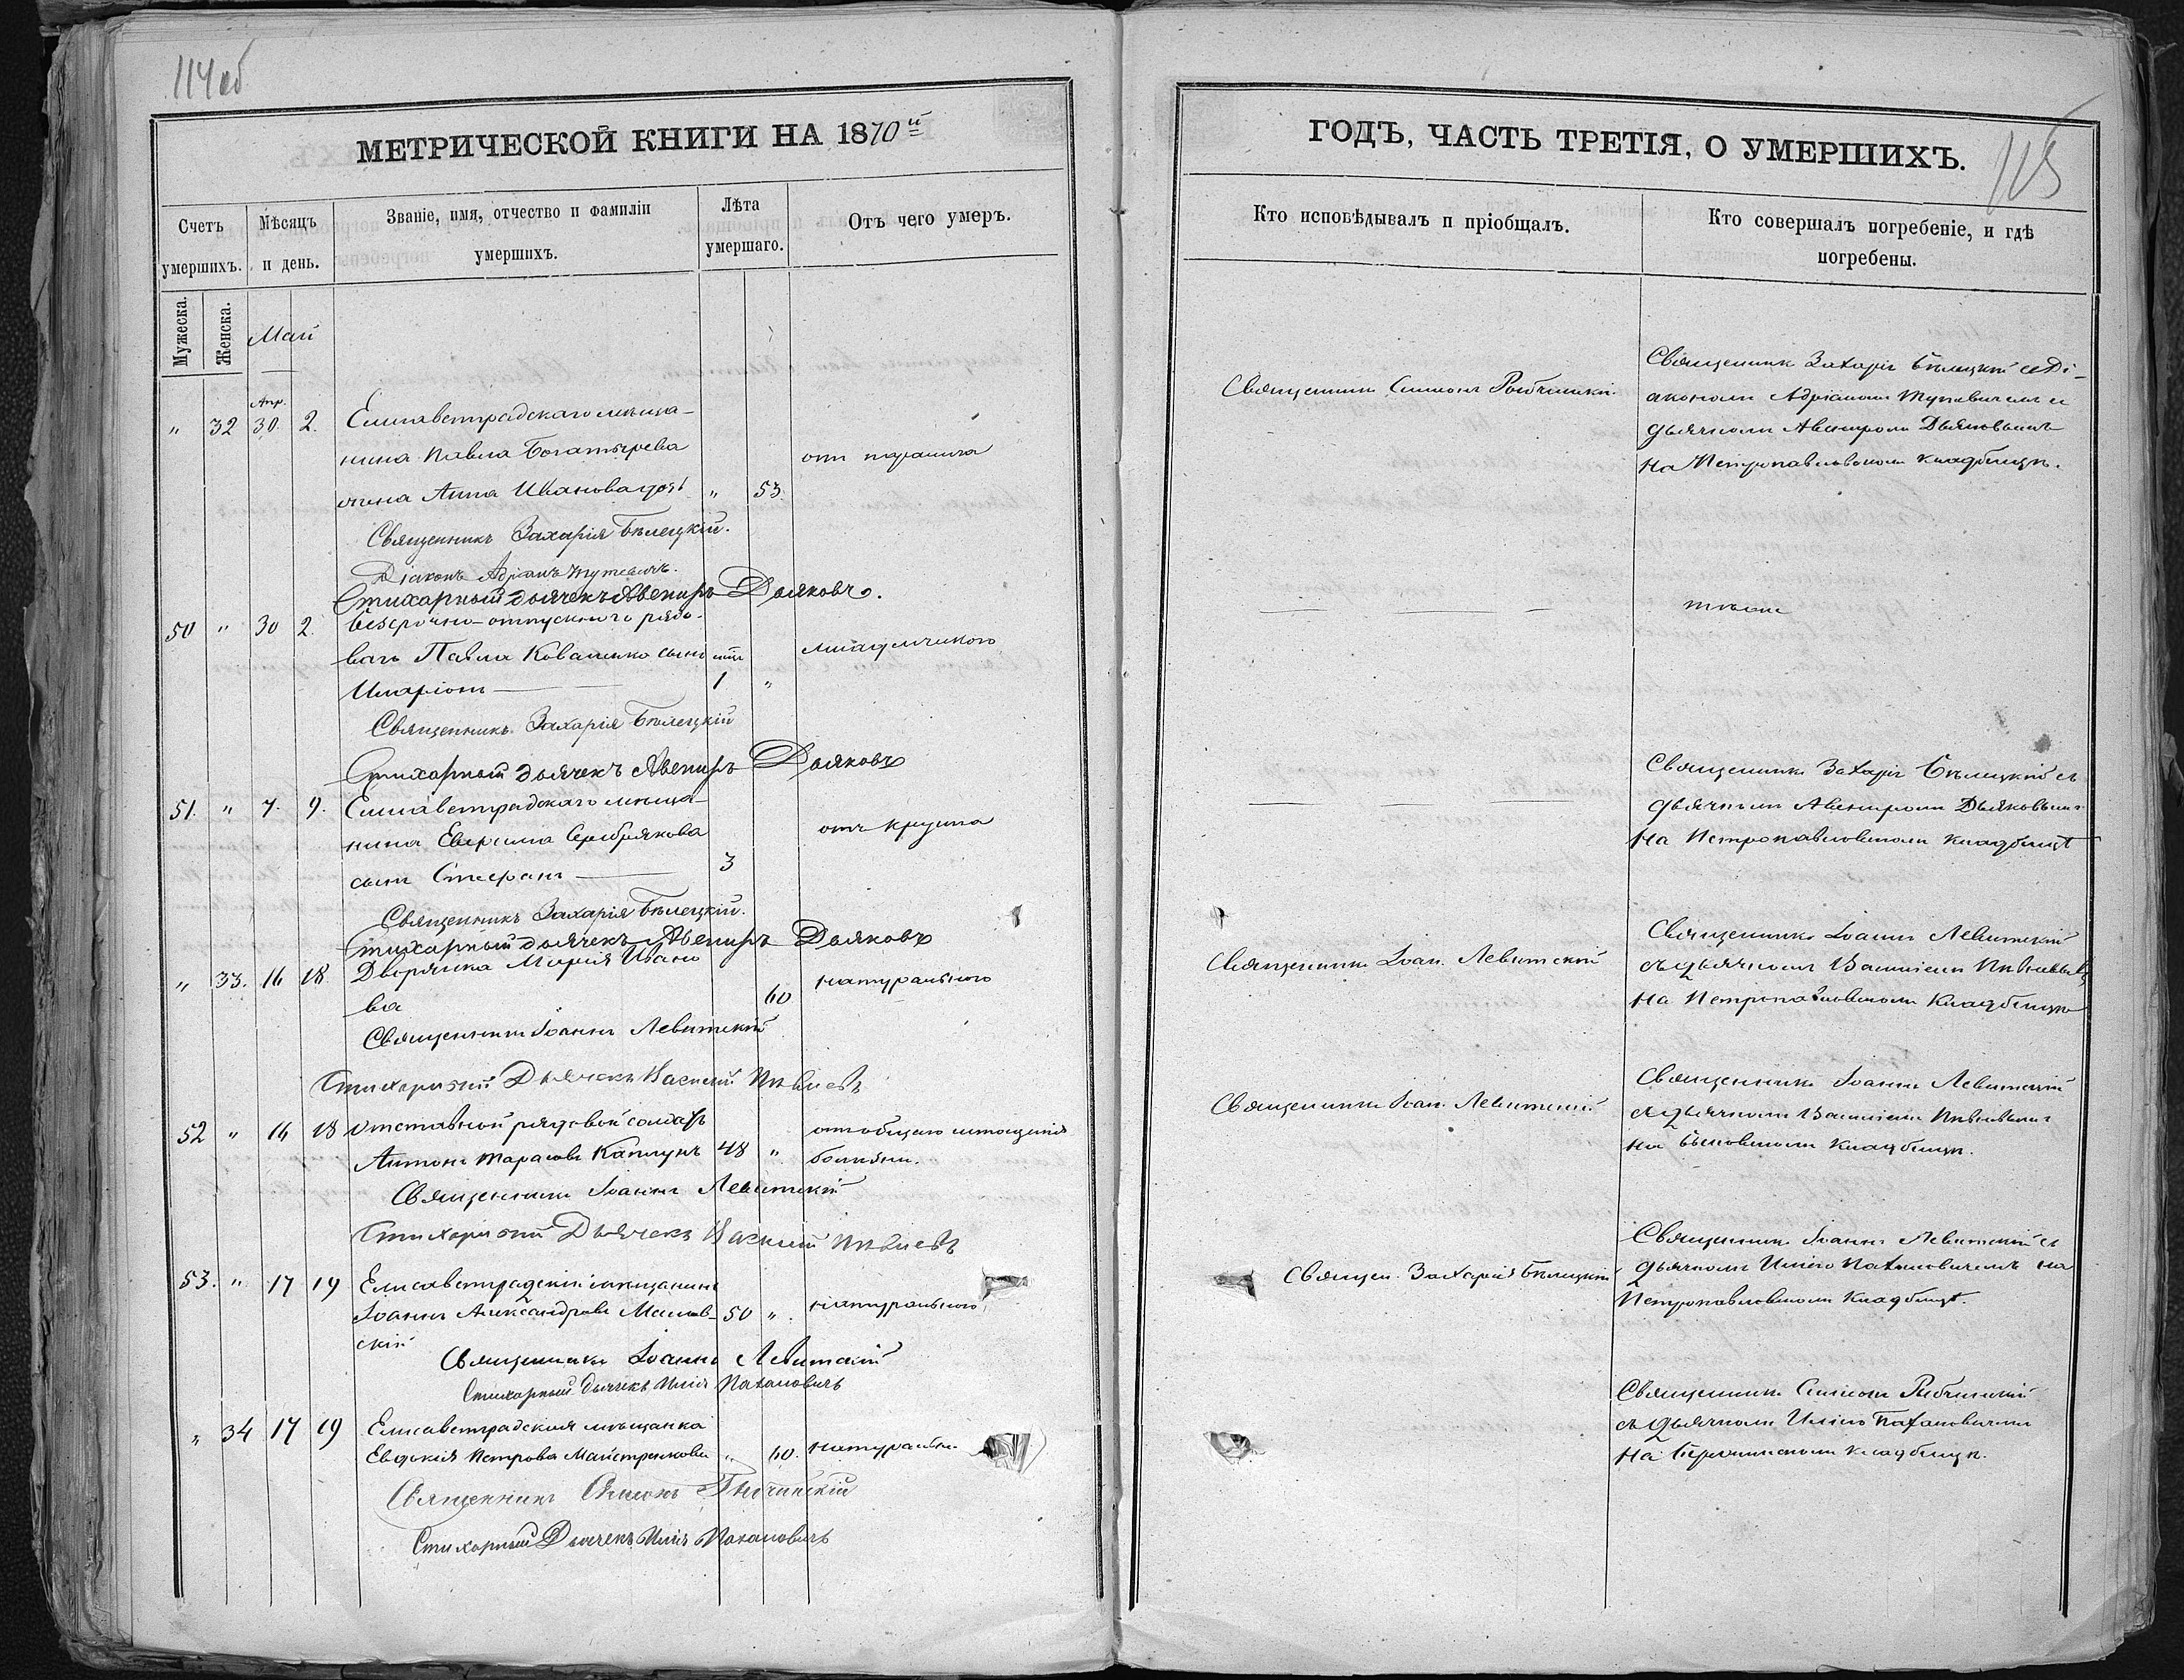 114 об
МЕТРИЧЕСКОЙ КНИГИ НА 1870 й
Счетъ умершихъ.
Мѣсяцъ и день.
Званіе, имя, отчество и фамиліи умершихъ.
Лѣта умершаго.
Отъ чего умеръ.
Мужеска.
Женска.
Май
Апр.
" 32 30. 2. Елисаветградскаго мѣща-
нина Павла Богатырева
жена Анна Иванова " 53.
Священникъ Захарія Бѣлецкій.
Діаконъ Адріанъ
Стихарный дьячекъ Авениръ Дьяковъ.
50 " 30 2. безсрочно-отпускнаго рядо-
ваго Павла Коваленко сынъ младенческаго
Иларіонъ 1 "
Священникъ Захарія Бѣлецкій
Стихарный дьячекъ Авениръ Дьяковъ
51. " 7. 9. Елисаветградскаго мѣща-
нина Ефрема Серебрякова отъ крупа
сынъ Стефанъ 3
Священникъ Захарія Бѣлецкій.
Стихарный дьячекъ Авениръ Дьяковъ
" 33. 16 18. Дворянка Марія Ивано натуральною
ва 60
Священникъ Іоаннъ Левитскій
Стихарный Дьячекъ Василій
52 " 16 18 Отставной рядовой солдатъ отъ общаго истощенія
Антонъ Тарасовъ Каплунъ 48 " болѣзни.
Священникъ Іоаннъ Левитскій
Стихарный Дьячекъ Василій
53. " 17 19 Елисаветградскій мѣщанинъ
Іоаннъ Александровъ 50 " натуральною
скій
Священникъ Іоаннъ Левитскій
Стихарный дьячекъ Илія Пахановичъ
" 34 17 19 Елисаветградская мѣщанка
Евдокія Петрова " 60. натуральн.
Священникъ Симеонъ
Стихарный Дьячекъ Илія Пахановичъ
ГОДЪ, ЧАСТЬ ТРЕТІЯ, О УМЕРШИХЪ.
115
Кто исповѣдывалъ и пріобщалъ.
Кто совершалъ погребеніе, и гдѣ погребены.
Священникъ Симеонъ
Священникъ Захарія Бѣлецкій съ Ді-
акономъ Адріаномъ и
дьячкомъ Авениромъ Дьяковымъ
на Петропавловскомъ кладбищѣ.
тѣже
Священникъ Захарія Бѣлецкій съ
дьячкомъ Авениромъ Дьяковымъ
На Петропавловскомъ кладбищѣ
Священникъ Іоан. Левитскій
Священникъ Іоаннъ Левитскій
съ дьячкомъ Василіемъ
На Петропавловскомъ Кладбищѣ
Священникъ Іоан. Левитскій
Священникъ Іоаннъ Левитскій
съ дьячкомъ Василіемъ
на Быковскомъ кладбищѣ.
Священ. Захарія Бѣлецкій
Священникъ Іоаннъ Левитскій съ
дьячкомъ Иліею Пахановичемъ на
Петропавловскомъ Кладбищѣ.
Священникъ Симеонъ
съ дьячкомъ Иліею Пахановичемъ
На кладбищѣ.